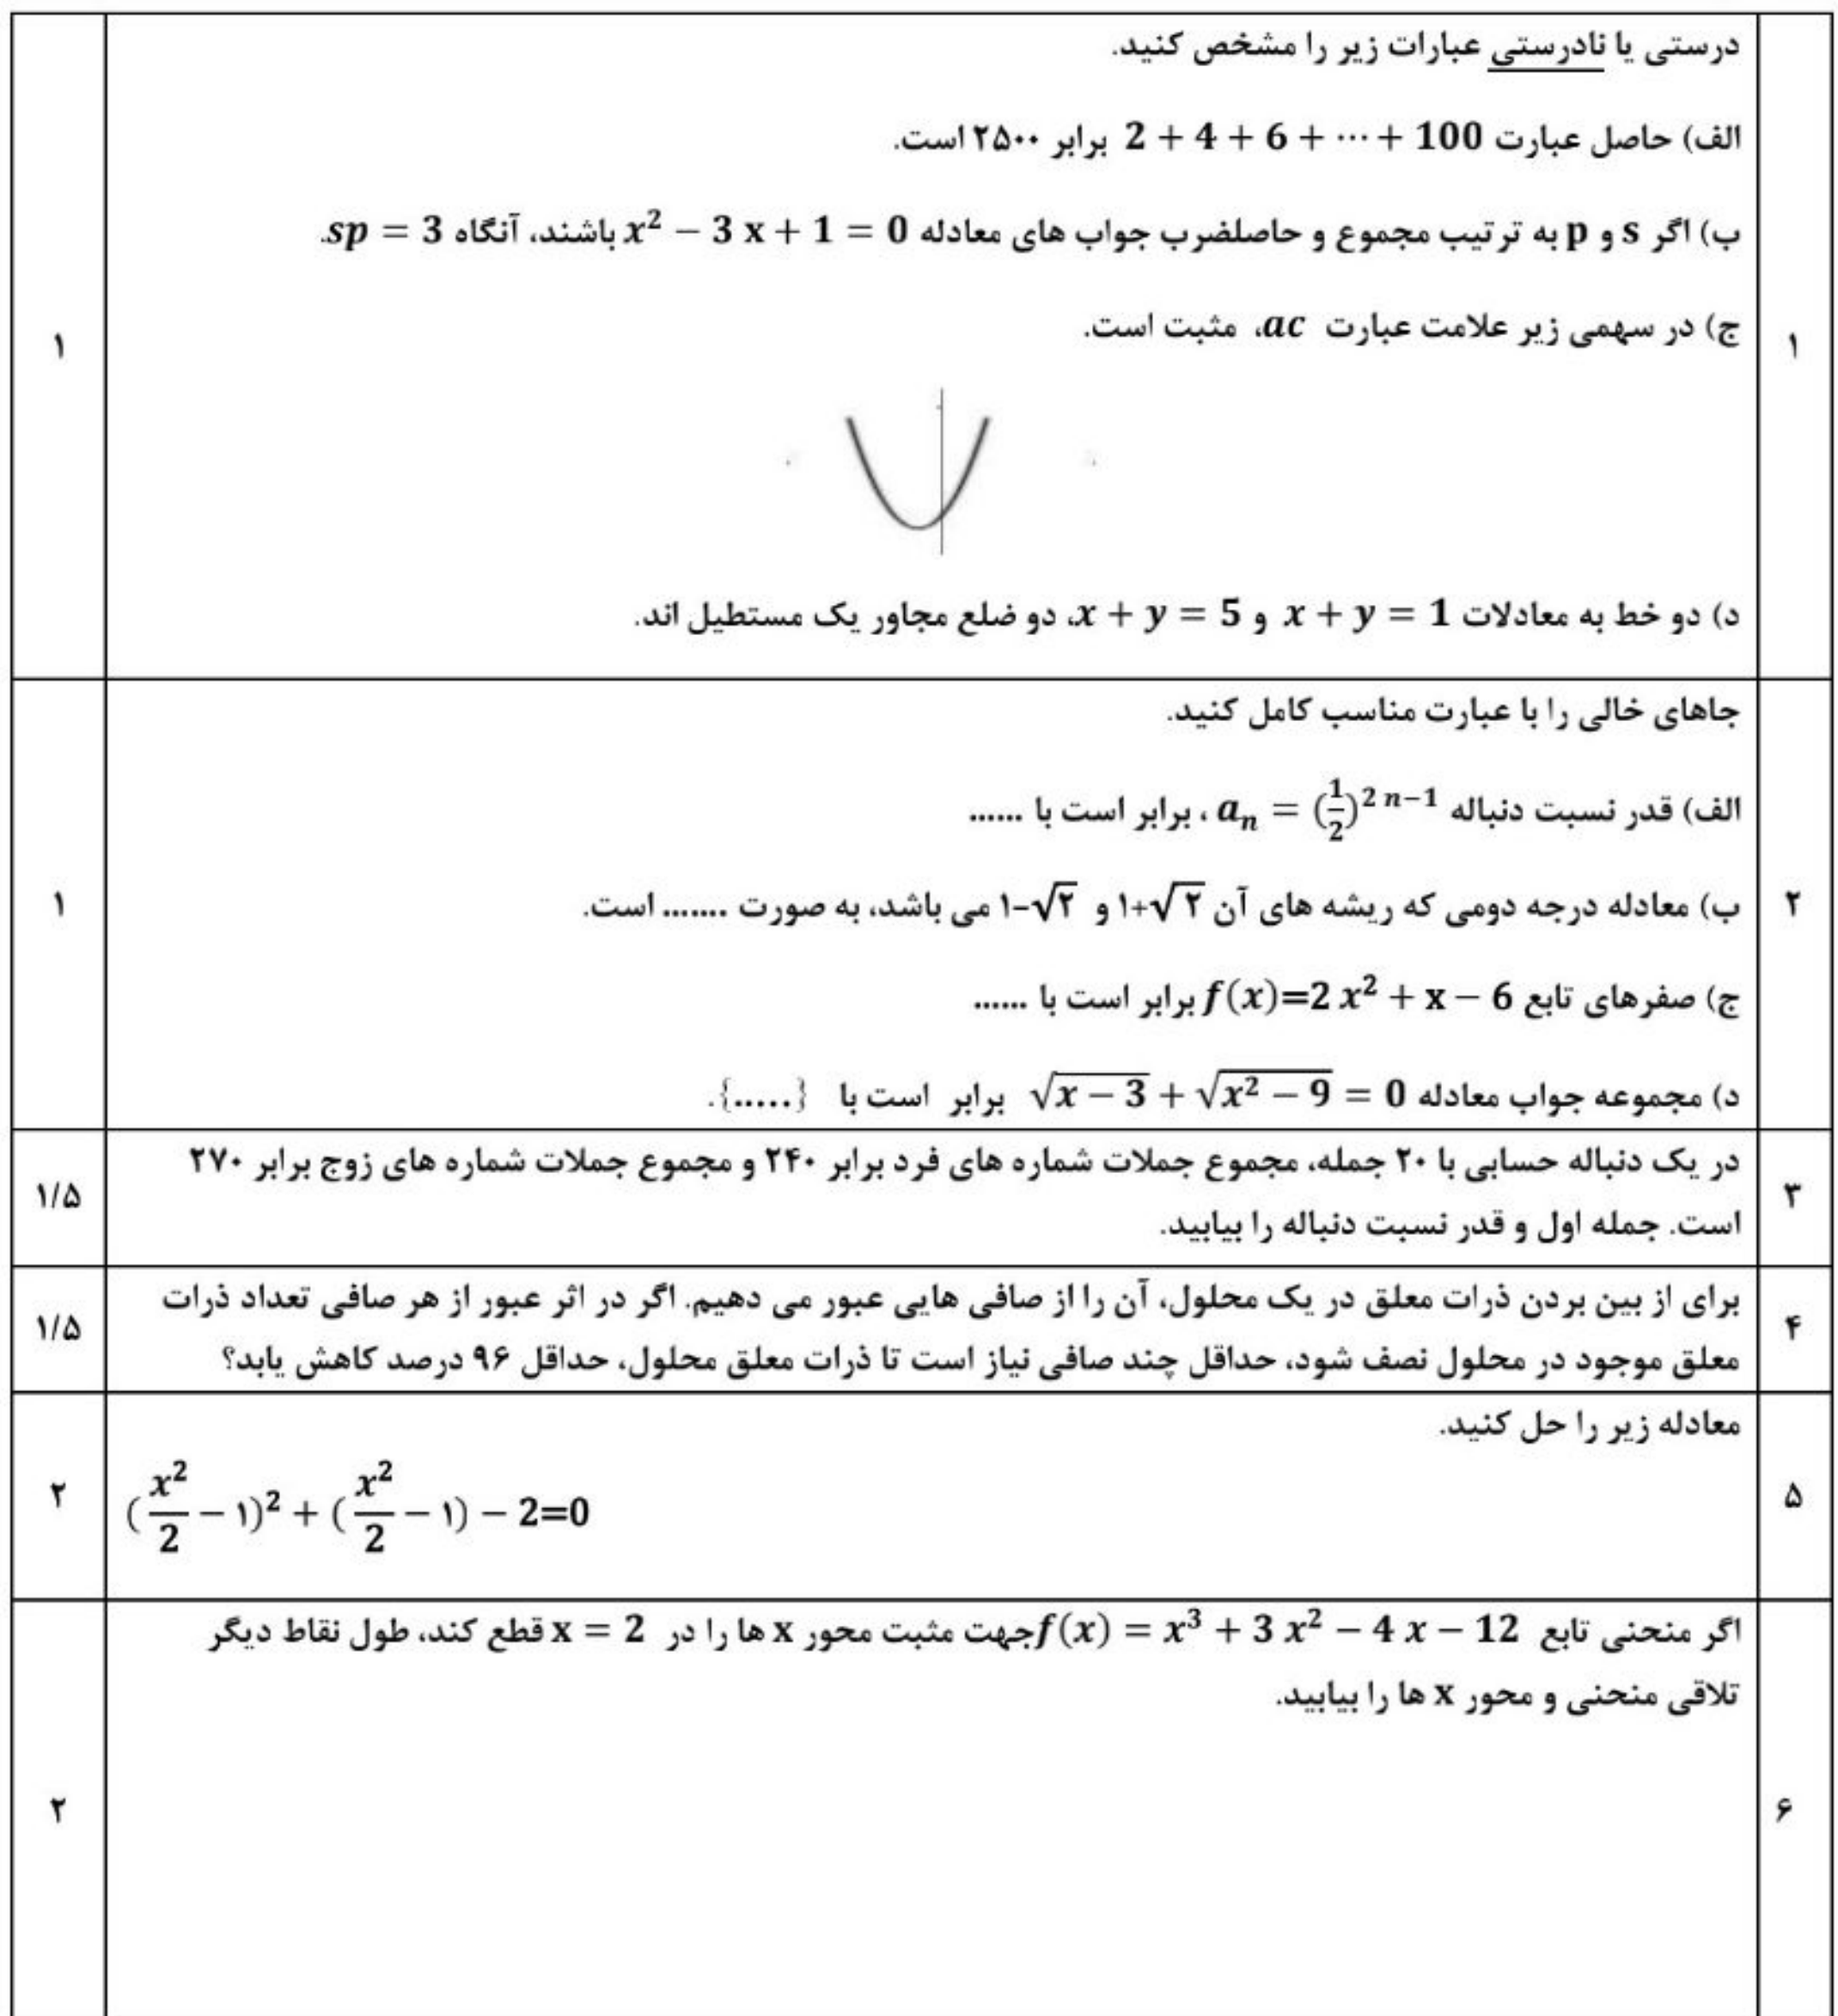 درستی یا نادرستی عبارات زیر را مشخص کنید.
الف) حاصل عبارت 2 + 4 + 6 + ⋯ + 100 برابر ۲۵۰۰ است.
ب) اگر s و p به ترتیب مجموع و حاصلضرب جواب های معادله x² − 3 x + 1 = 0 باشند، آنگاه sp = 3.
ج) در سهمی زیر علامت عبارت ac، مثبت است.
۱
۱
د) دو خط به معادلات x + y = 1 و x + y = 5، دو ضلع مجاور یک مستطیل اند.
جاهای خالی را با عبارت مناسب کامل کنید.
الف) قدر نسبت دنباله aₙ = (1/2)^(2 n−1) ، برابر است با ......
۲
ب) معادله درجه دومی که ریشه های آن ۱+√۲ و ۱-√۲ می باشد، به صورت ....... است.
۱
ج) صفرهای تابع f(x)=2 x² + x − 6 برابر است با ......
د) مجموعه جواب معادله √(x − 3) + √(x² − 9) = 0 برابر است با {.....}.
در یک دنباله حسابی با ۲۰ جمله، مجموع جملات شماره های فرد برابر ۲۴۰ و مجموع جملات شماره های زوج برابر ۲۷۰
۳
۱/۵
است. جمله اول و قدر نسبت دنباله را بیابید.
برای از بین بردن ذرات معلق در یک محلول، آن را از صافی هایی عبور می دهیم. اگر در اثر عبور از هر صافی تعداد ذرات
۴
۱/۵
معلق موجود در محلول نصف شود، حداقل چند صافی نیاز است تا ذرات معلق محلول، حداقل ۹۶ درصد کاهش یابد؟
معادله زیر را حل کنید.
۵
(x²/2 − ۱)² + (x²/2 − ۱) − 2=0
۲
اگر منحنی تابع f(x) = x³ + 3 x² − 4 x − 12 جهت مثبت محور x ها را در x = 2 قطع کند، طول نقاط دیگر
تلاقی منحنی و محور x ها را بیابید.
۶
۲